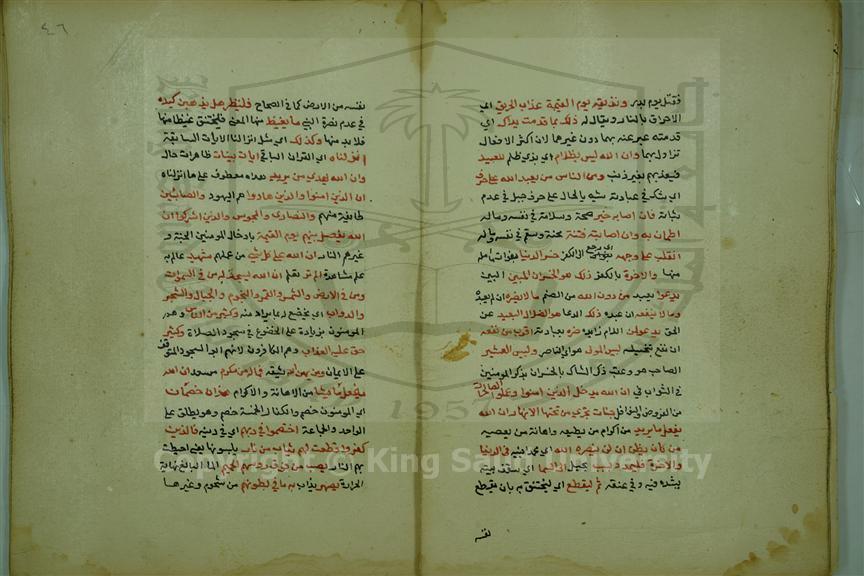 فقتل يوم بدر ونذيقه يوم القيمة عذاب الحريق اي
الاحراق بالنار ويقال له ذلك بما قدمت يداك اي
قدمته عبر عنه بهما دون غيرهما لان اكثر الافعال
تزاول بهما وان الله ليس بظلام اي بذي ظلم للعبيد
فيعذبهم بغير ذنب ومن الناس من يعبد الله على حرف
اي شك في عبادته شبه بالحال على حرف جبل في عدم
ثباته فان اصابه خير صحة وسلامة في نفسه وماله
اطمان به وان اصابته فتنة محنة وسقم في نفسه وماله
انقلب على وجهه اي رجع الى الكفر خسر الدنيا بفوات ما امله
منها والاخرة بالكفر ذلك هو الخسران المبين البين
يدعوا يعبد من دون الله من الصنم ما لا يضره ان لم يعبده
وما لا ينفعه ان عبده ذلك الدعا هو الضلال البعيد عن
الحق يدعو لمن اللام زايدة ضره بعبادته اقرب من نفعه
ان نفع بتخيله لبئس المولى هو اي الناصر ولبئس العشير
الصاحب هو وعقب ذكر الشاك بالخسران بذكر المومنين
في الثواب في ان الله يدخل الذين امنوا وعملوا الصالحات
من الفروض والنوافل جنات تجري من تحتها الانهار ان الله
يفعل ما يريد من اكرام من يطيعه واهانة من يعصيه
من كان يظن ان لن ينصره الله اي محمدا نبيه في الدنيا
والاخرة فليمدد بسبب بحبل الى السما اي سقف بيته
يشده فيه وفي عنقه ثم ليقطع اي ليختنق به بان يقطع
نفسه
٤٦
نفسه من الارض كما في الصحاح فلينظر هل يذهبن كيده
في عدم نصرة النبي ما يغيظ منها المعنى فليختنق غيظا منها
فلا بد منها وكذلك اي مثل انزالنا الايات السابقة
انزلناه اي القران الباقي ايات بينات ظاهرات حال
وان الله يهدي من يريد هداه معطوف على ها انزلناه
ان الذين امنوا والذين هادوا هم اليهود والصابئين
طايفة منهم والنصارى والمجوس والذين اشركوا ان
الله يفصل بينهم يوم القيمة بادخال المومنين الجنة و
غيرهم النار ان الله على كل شي من عملهم شهيد عالم به
علم مشاهدة الم تر تعلم ان الله يسجد له من في السموات
ومن في الارض والشمس والقمر والنجوم والجبال والشجر
والدواب اي يخضع له بما يراد منه وكثير من الناس وهم
المومنون بزيادة على الخضوع في سجود الصلاة وكثير
حق عليه العذاب وهم الكافرون لانهم ابوا السجود المتوقف
على الايمان ومن يهن الله يشقه فما له من مكرم مسعد ان الله
يفعل ما يشا من الاهانة والاكرام هذان خصمان
اي المومنون خصم والكفار الخمسة خصم وهو يطلق على
الواحد والجماعة اختصموا في ربهم اي في دينه فالذين
كفروا قطعت لهم ثياب من نار يلبسونها يعني احيطت
بهم النار يصب من فوق رءوسهم الحميم الماء البالغ نهاية
الحرارة يصهر يذاب به ما في بطونهم من شحوم وغيرها
Copyright © King Saud University
1957